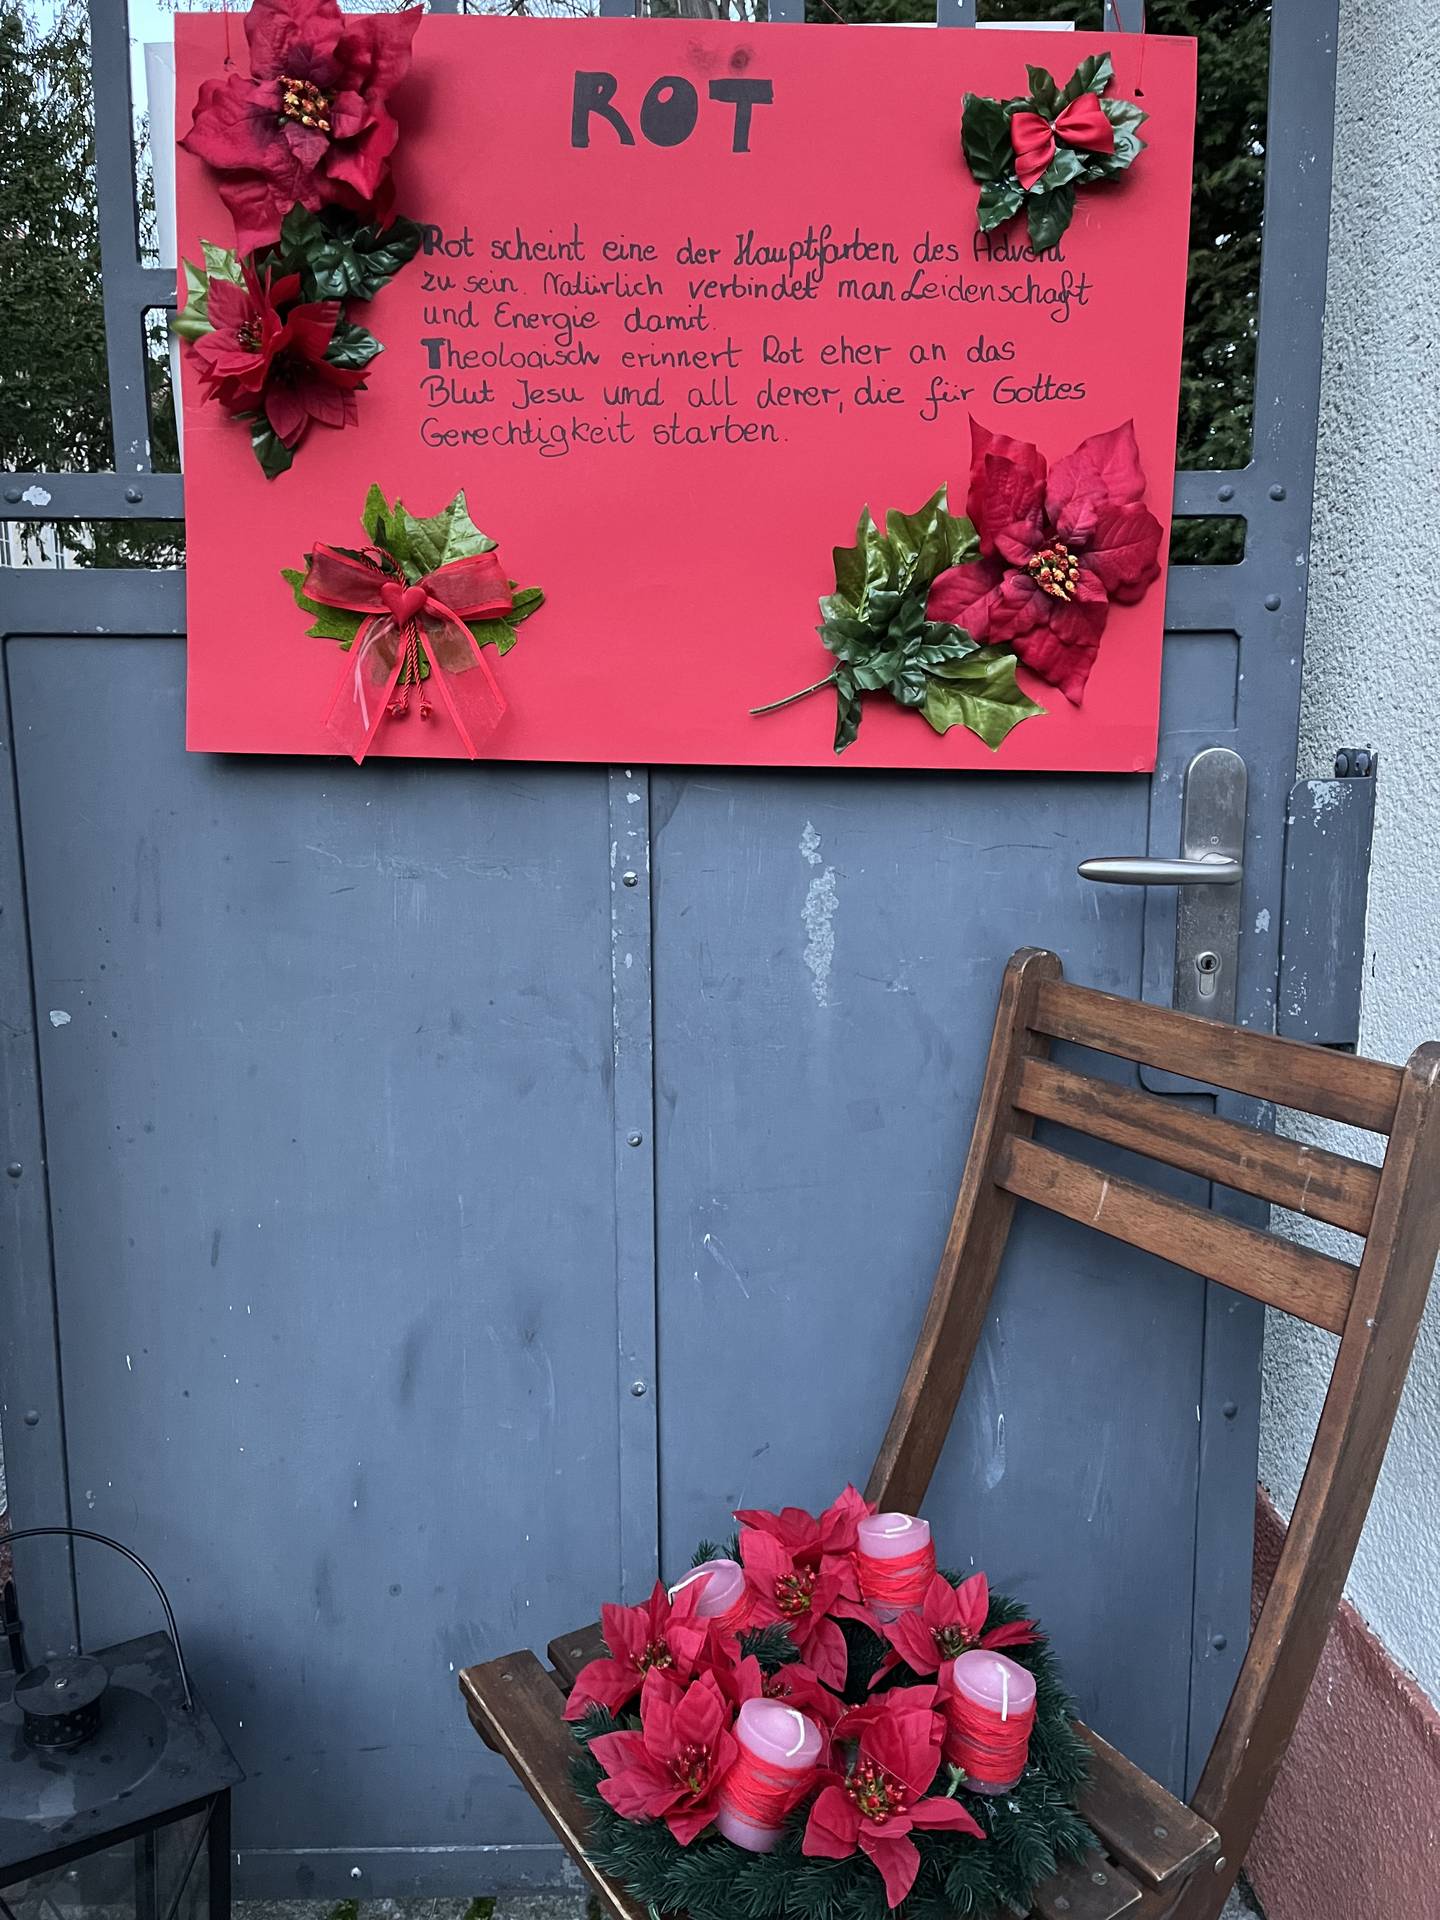 ROT
Rot scheint eine der Hauptfarben des Advent
zu sein. Natürlich verbindet man Leidenschaft
und Energie damit.
Theologisch erinnert Rot eher an das
Blut Jesu und all derer, die für Gottes
Gerechtigkeit starben.